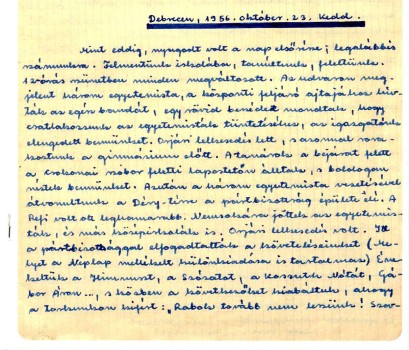 Debrecen, 1956. október. 23. Kedd.
Mint eddig, nyugodt volt a nap elsőrésze; legalábbis
számunkra. Felmentünk iskolába, tanultunk, feleltünk.
12-órás szünetben minden megváltozott. Az udvaron meg-
jelent három egyetemista, a központi feljáró ajtajához hív-
ták az egész bandát, egy rövid beszédet mondtak, hogy
csatlakozzunk az egyetemisták tüntetéséhez, az igazgatónk
elengedett bennünket. Óriási lelkesedés lett, s azonnal sora-
koztunk a gimnázium előtt. A tanárok a bejárat felett
a Csokonai szobor feletti lapostetőn álltak, s boldogan
néztek bennünket. Azután a három egyetemista vezetésével
átvonultunk a Déry-térre a pártbizottság épülete elé. A
Refi volt ott leghamarabb. Nemsokára jöttek az egyetemis-
ták, és más középiskolák is. Óriási lelkesedés volt. Itt
a pártbizottsággal elfogadtatták a követeléseinket (Me-
lyet a Néplap mellékelt különkiadása is tartalmaz) Éne-
keltük a Himnuszt, a Szózatot, a Kossuth Nótát, Gá-
bor Áron..., s közben a következőket kiabáltuk, ahogy
a torkunkon kifért: „Rabok tovább nem leszünk! Szov-